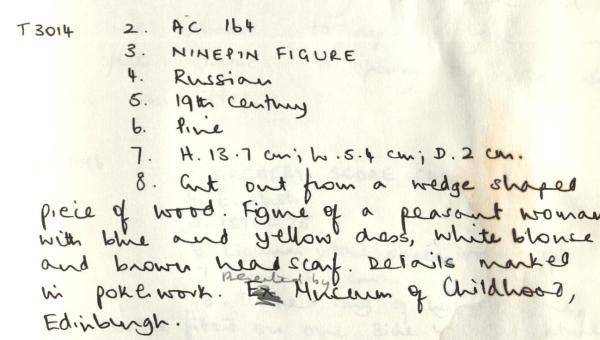 T3014 2. AC 164
3. NINEPIN FIGURE
4. Russian
5. 19th Century
6. Pine
7. H. 13.7 cm; W. 5.4 cm; D. 2 cm.
8. Cut out from a wedge shaped
piece of wood. Figure of a peasant woman
with blue and yellow dress, white blouse
and brown headscarf. Details marked
in pokerwork. Deposited by Museum of Childhood,
Edinburgh.